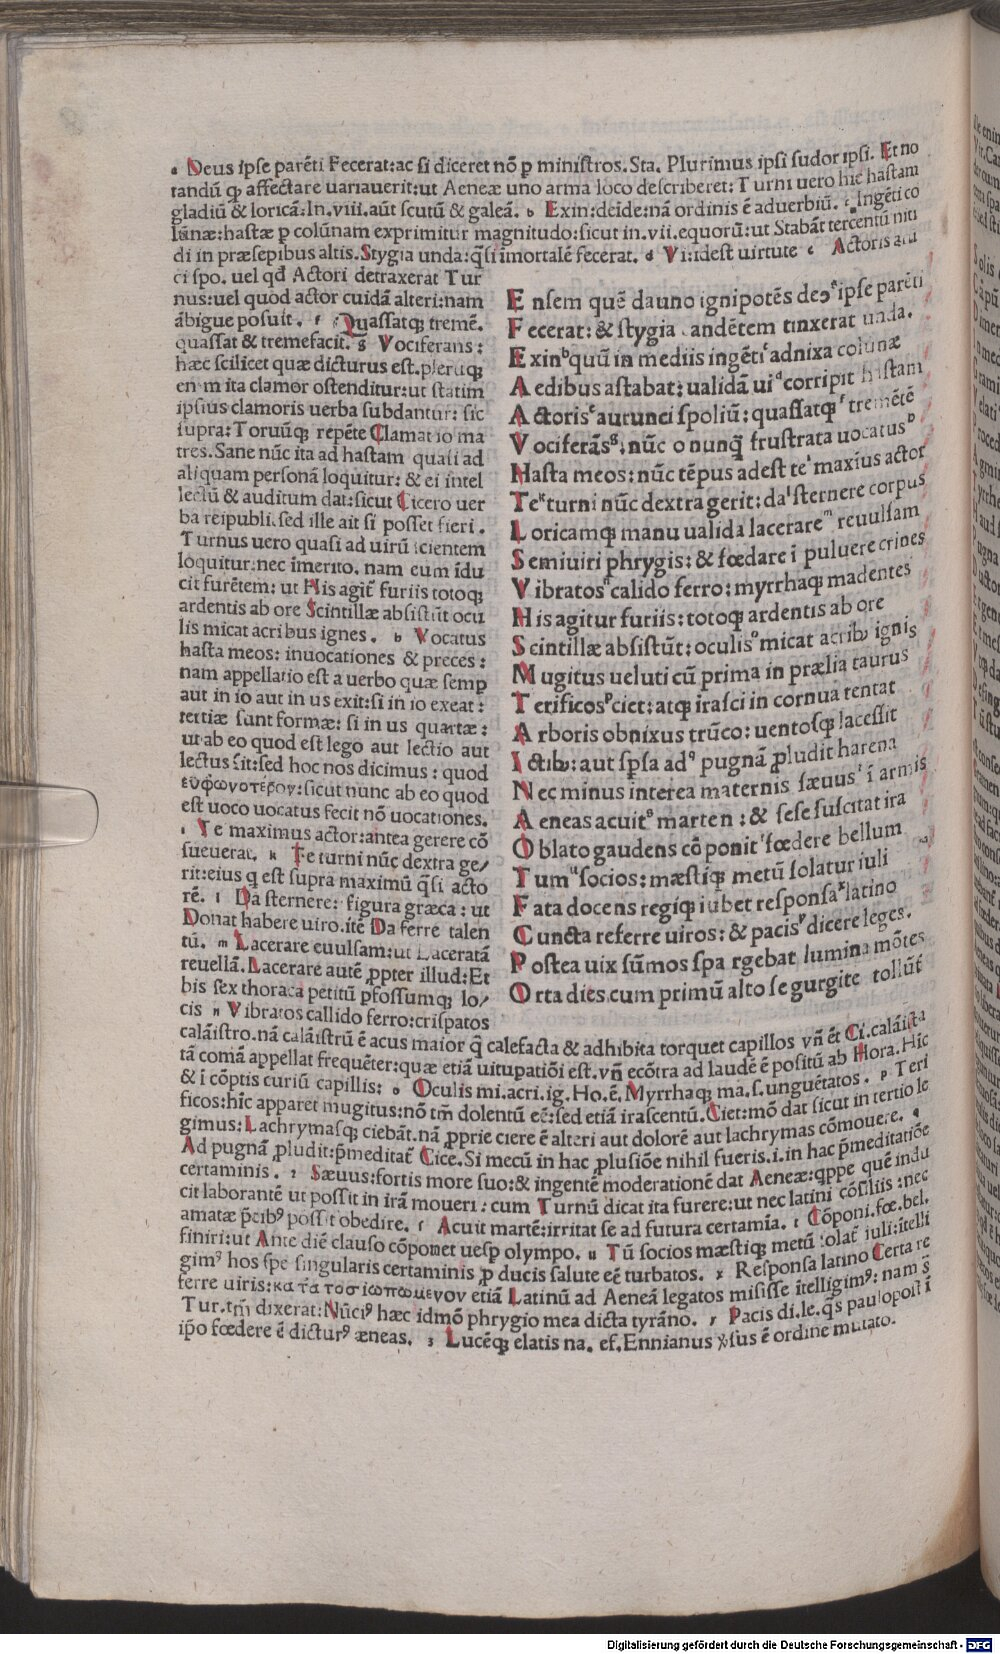 a Deus ipse parēti Fecerat:ac si diceret nō p ministros. Sta. Plurimus ipsi sudor ipsi. Et no
tandū qꝫ affectare uariauerit:ut Aeneæ uno arma loco describeret: Turni uero hic hastam
gladiū & loricā. In. viii. aūt scutū & galeā. b Exin:deīde:nā ordinis ē aduerbiū. c Ingēti co
lūnæ:hastæ p colūnam exprimitur magnitudo:sicut in. vii. equorū:ut Stabāt tercentū niti
di in præsepibus altis. Stygia unda:q̄si īmortalē fecerat. d Vi:idest uirtute e Actoris au
ci spo. uel qđ Actori detraxerat Tur
nus:uel quod actor cuidā alteri:nam
ābigue posuit. f Quassatqꝫ tremē.
quassat & tremefacit. g Vociferans:
hæc scilicet quæ dicturus est. plerūqꝫ
enim ita clamor ostenditur:ut statim
ipsius clamoris uerba subdantur: sic
supra: Toruūqꝫ repēte Clamat io ma
tres. Sane nūc ita ad hastam quasi ad
aliquam personā loquitur: & ei intel
lectū & auditum dat:sicut Cicero uer
ba reipubli. sed ille ait si posset fieri.
Turnus uero quasi ad uirū scientem
loquitur:nec īmerito. nam eum īdu
cit furētem: ut His agit furiis totoqꝫ
ardentis ab ore Scintillæ absistūt ocu
lis micat acribus ignes. h Vocatus
hasta meos: inuocationes & preces:
nam appellatio est a uerbo quæ semp
aut in io aut in us exit:si in io exeat:
tertiæ sunt formæ: si in us quartæ:
ut ab eo quod est lego aut lectio aut
lectus fit:sed hoc nos dicimus: quod
εὐφωνοτέρον:sicut nunc ab eo quod
est uoco uocatus fecit nō uocationes.
i Te maximus actor:antea gerere cō
sueuerat. k Te turni nūc dextra ge/
rit:eius q est supra maximū q̄si acto
rē. l Da sternere: figura græca: ut
Donat habere uiro. itē Da ferre talen
tū. m Lacerare euulsam:ut Laceratā
reuellā. Lacerare autē ꝓpter illud: Et
bis sex thoraca petitū pfossumqꝫ lo/
cis n Vibratos callido ferro:crispatos
E nsem quē dauno ignipotēs deꝰ ᵃ ipse parēti
F ecerat: & stygia candētem tinxerat unda.
E xin ᵇ quū in mediis ingēti ᶜ adnixa colunæ
A edibus astabat: ualidā ui ᵈ corripit hastam
A ctoris ᵉ aurunci spoliū: quassatqꝫ ᶠ tremētē
V ociferās ᵍ: nūc o nunq̄ frustrata uocatus ʰ
H asta meos: nūc tēpus adest te ⁱ maxius actor
T e ᵏ turni nūc dextra gerit: da ˡ sternere corpus
L oricamqꝫ manu ualida lacerare ᵐ reuulsam
S emiuiri phrygis: & fœdare ī puluere crines
V ibratos ⁿ calido ferro: myrrhaqꝫ madentes
H is agitur furiis: totoqꝫ ardentis ab ore
S cintillæ absistūt: oculis ᵒ micat acribꝰ ignis
M ugitus ueluti cū prima in prælia taurus
T erificos ᵖ ciet: atqꝫ irasci in cornua tentat
A rboris obnixus trūco: uentosqꝫ lacessit
I ctibꝰ: aut spsa ad ᵠ pugnā ꝓludit harena
N ec minus interea maternis sæuus ʳ ī armis
A eneas acuit ˢ martem: & sese suscitat ira
O blato gaudens cōponit ᵗ fœdere bellum
T um ᵘ socios: mæstiqꝫ metū solatur iuli
F ata docens regiqꝫ iubet responsa ˣ latino
C uncta referre uiros: & pacis ʸ dicere leges.
P ostea uix sūmos spa rgebat lumina mōtes
O rta dies. cum primū alto se gurgite tollūt
calāistro. nā calāistrū ē acus maior q̄ calefacta & adhibita torquet capillos vñ ēt Ci. calāista
tā comā appellat frequēter:quæ etiā uitupatiōi est. vñ ecōtra ad laudē ē positū ab Hora. Hīc
& ī cōptis curiū capillis: o Oculis mi. acri. ig. Ho. ē. Myrrhaqꝫ ma. s. unguētatos. p Teri
ficos:hīc apparet mugitus:nō tm̄ dolentū eē:sed etiā irascentū. Ciet:mō dat sicut in tertio le
gimus: Lachrymasqꝫ ciebāt. nā ꝓprie ciere ē alteri aut dolorē aut lachrymas cōmouere. q
Ad pugnā ꝓludit:p̄meditat̄ Cice. Si mecū in hac ꝓlusiōe nihil fueris. i. in hac p̄meditatiōe
certaminis. r Sæuus:fortis more suo:& ingentē moderationē dat Aeneæ:qppe quē indu
cit laborantē ut possit in irā moueri: cum Turnū dicat ita furere:ut nec latini cōsiliis:nec
amatæ p̄cibꝰ possit obedire. s Acuit martē:irritat se ad futura certamīa. t Cōponi. fœ. bel.
finiri:ut Ante diē clauso cōponet uesp olympo. u Tū socios mæstiqꝫ metū solat̄ iuli:ītelli
gimꝰ hos spe singularis certaminis ꝓ ducis salute eē turbatos. x Responsa latino Certa re
ferre uiris:κατα τοσιωπωμενον etiā Latinū ad Aeneā legatos misisse ītelligimꝰ: nam s̄
Tur. tm̄ dixerat: Nūciꝰ hæc idmō phrygio mea dicta tyrāno. y Pacis di. le. q̄s paulopost ī
ipo fœdere ē dicturꝰ æneas. z Lucēqꝫ elatis na. ef. Ennianus ꝟsus ē ordine mutato.
Digitalisierung gefördert durch die Deutsche Forschungsgemeinschaft - DFG